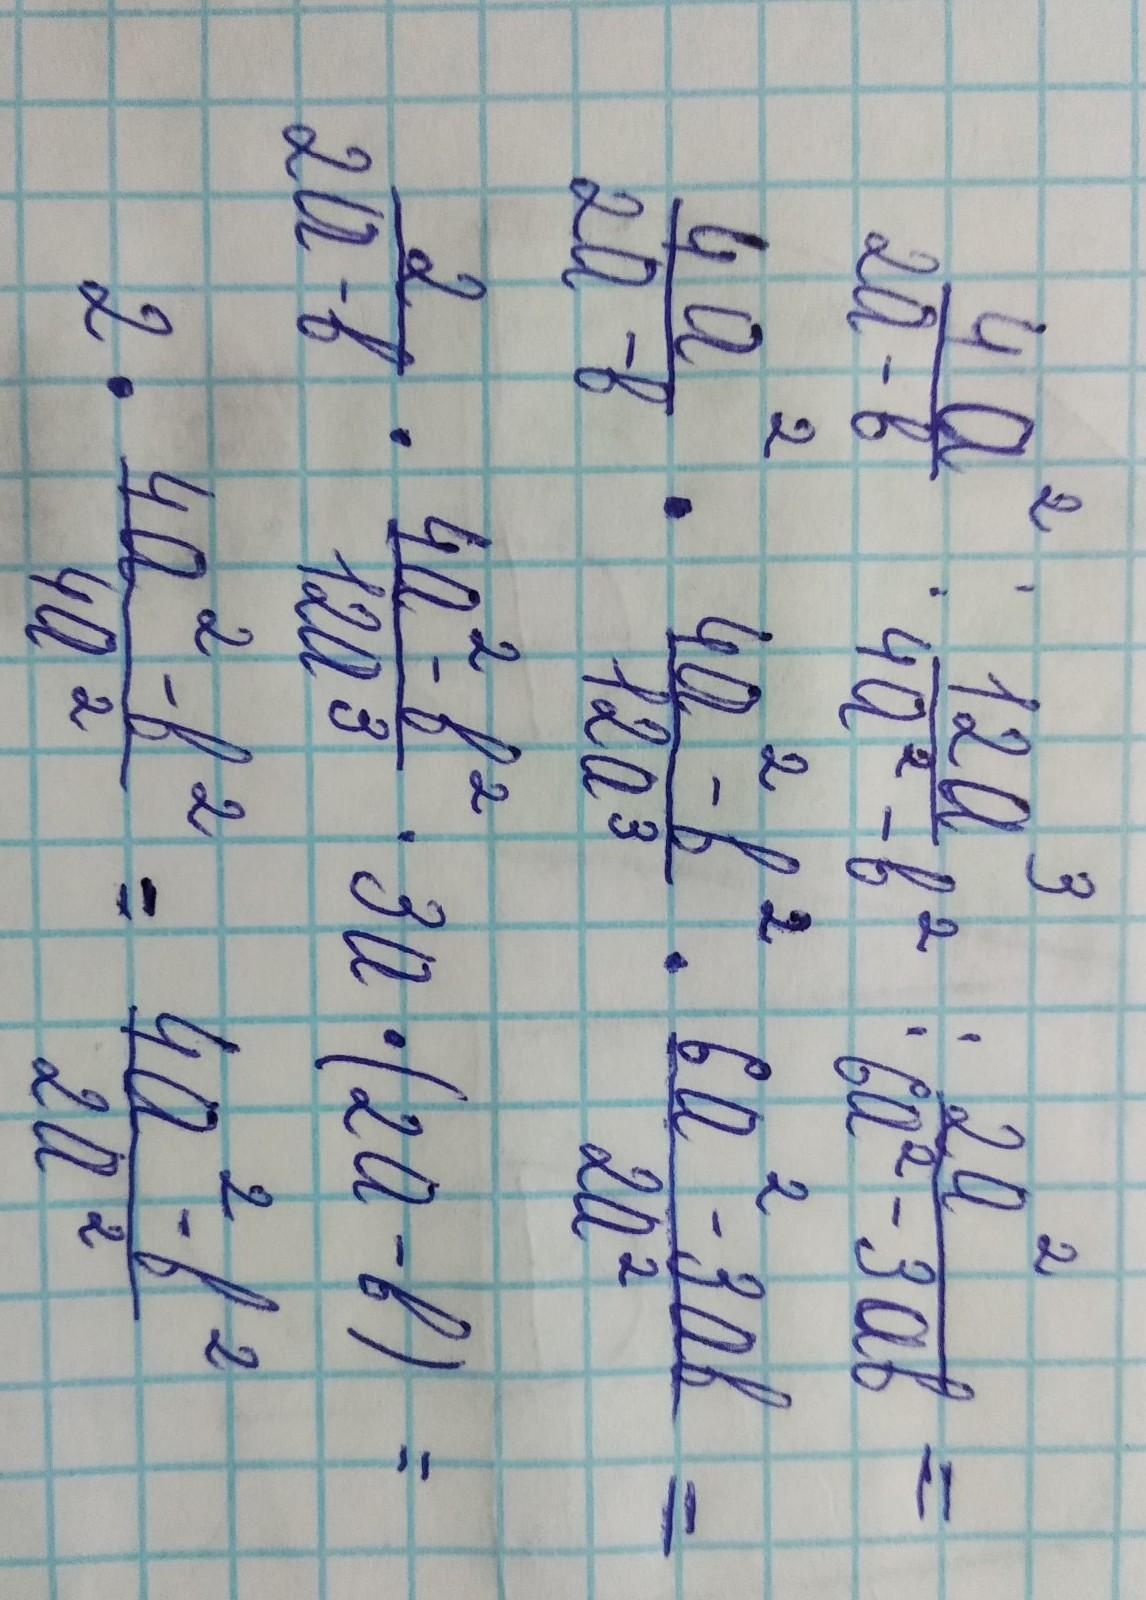 4a²/2a-b : 12a³/4a²-b² : 2a²/6a²-3ab =
4a²/2a-b · 4a²-b²/12a³ · 6a²-3ab/2a² =
2/2a-b · 4a²-b²/12a³ · 3a · (2a-b) =
2 · 4a²-b²/4a² = 4a²-b²/2a²